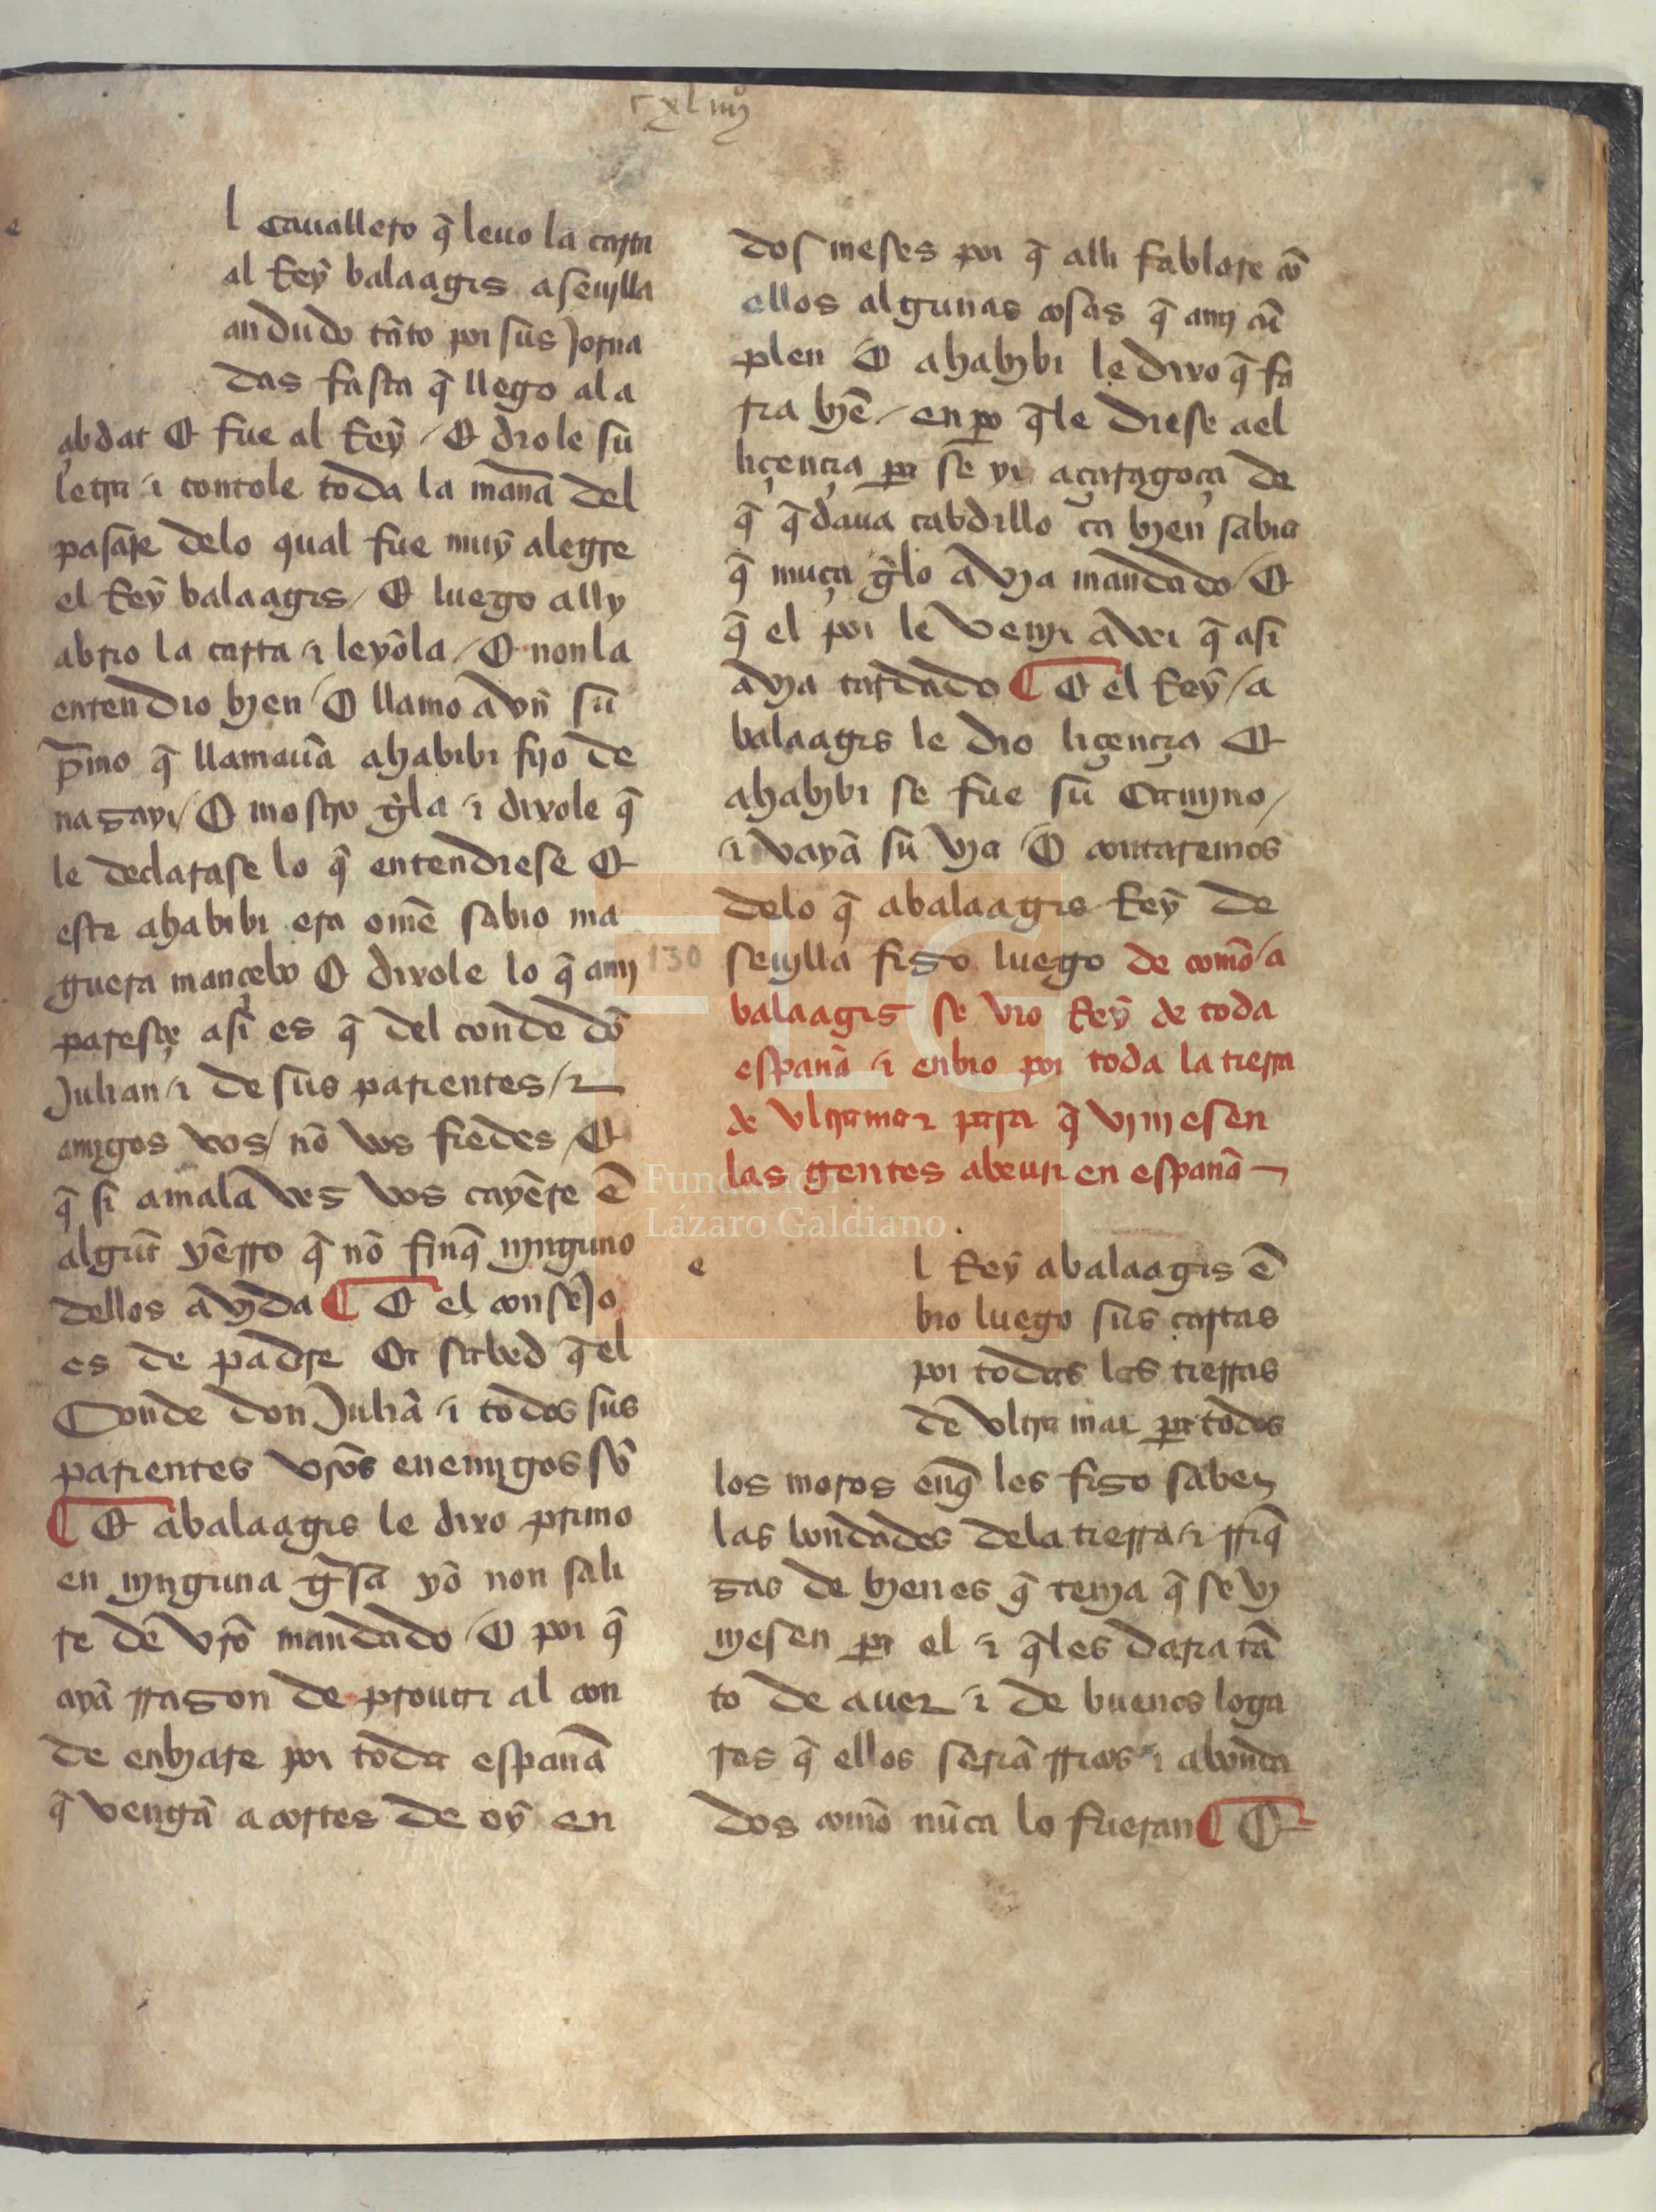 cxliiijº
e
l cauallero q̃ leuo la carta
al Rey balaagis a seuylla
andudo tãto por sus Jorna
das fasta q̃ llego al a
abdat Et fue al Rey / Et diole su
letra / i contole toda la manã del
pasaje delo qual fue muy alegre
el Rey balaagis / Et luego ally
abrio la carta / i leyola / Et non la
entendio byen / Et llamo a vn su
p̃mo q̃ llamauã ahabibi fijo de
nagayr / Et mostro gela / i dixole q̃
le declarase lo q̃ entendiese Et
este ahabibi era omẽ sabio ma
guera mançebo Et dixole lo q̃ amj
paresçe asi es q̃ del conde dõ
Julian / i de sus parientes / i
amigos vos / nõ vos fiedes / Et
q̃ si amala ves vos cayẽre ẽ
algũt yẽrro q̃ nõ finq̃ njnguno
dellos a vyda ¶ Et el conseJo
es de padre Ca sabed q̃el
Conde don Juliã / i todos sus
parientes vr̃os enemjgos sõ
¶ Et abalaagis le dixo primo
en njnguna gỹsa yo non sali
re de vr̃o mandado / Et por q̃
ayã rrason de prouar al con
de enbyare por toda espanã
q̃ vengã a cortes de oy en
130
dos meses por q̃ alli fablare cõ
ellos algunas cosas q̃ amj cũ
plen Et ahabybi le dixo q̃ fa
ria byẽ / enpo q̃le diese ael
liçençia pa se yr a çaragoça de
q̃ q̃daua cabdillo ca byen sabia
q̃ muça gelo avya mandado / Et
q̃ el por le venjr a ver q̃ asi
avya tardado ¶ Et el Rey / a
balaagis le dio liçençia Et
ahabybi se fue su Camyno /
/ i vayã su vya Et contaremos
delo q̃ abalaagis Rey de
seuylla fiso luego de comõ / a
balaagis se vio Rey de toda
espanã / i enbio por toda la tierra
de vltramar para q̃ vinjesen
las gentes abeujr en espanã
e
l Rey abalaagis ẽ
bio luego sus cartas
por todas las tierras
de vltra mar pa todos
los moros enq̃ les fiso saber
las bondades dela tierra / i rriq̃
sas de byenes q̃ tenja q̃ se vy
njesen pa el / i q̃les daria tã
to de auer / i de buenos loga
res q̃ ellos seriã rricos / i abonda
dos comõ nũca lo fueran ¶ Et
FLG
Fundación
Lázaro Galdiano